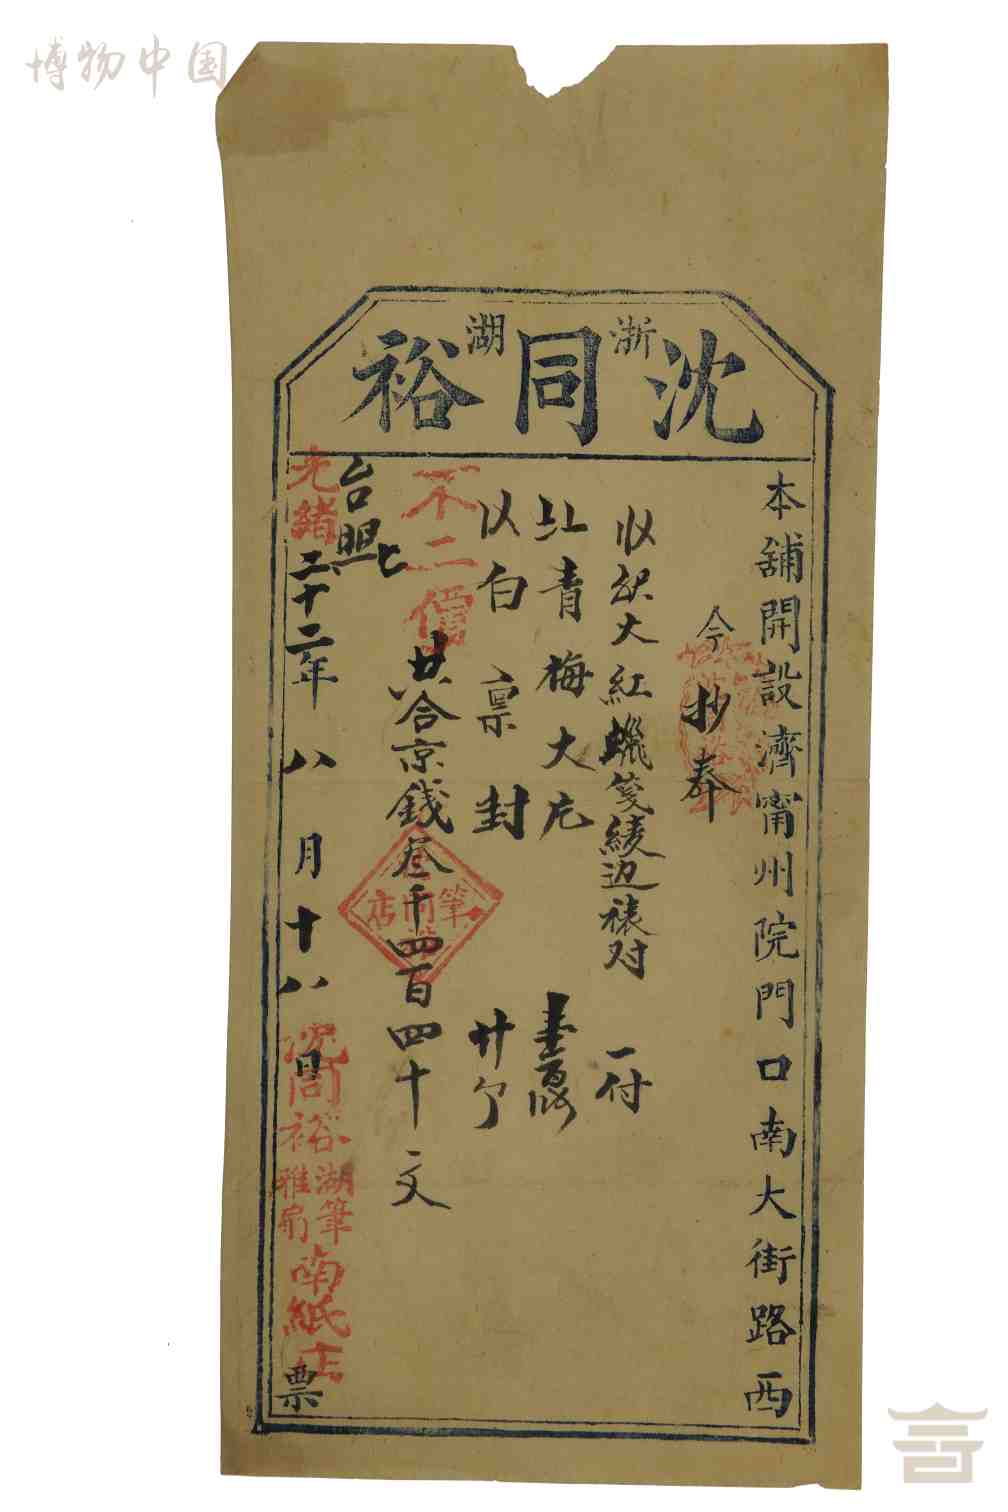 博物中国
浙湖
沈同裕
本舖開設濟甯州院門口南大街路西
今抄奉
大紅蠟箋綾边裱对 一付
青梅大 
白禀封 廿个
不二價
共合京錢叁千四百四十文
筆 店
台照
光緒二十二年八月十八日
沈同裕湖筆雅扇南紙庄
票